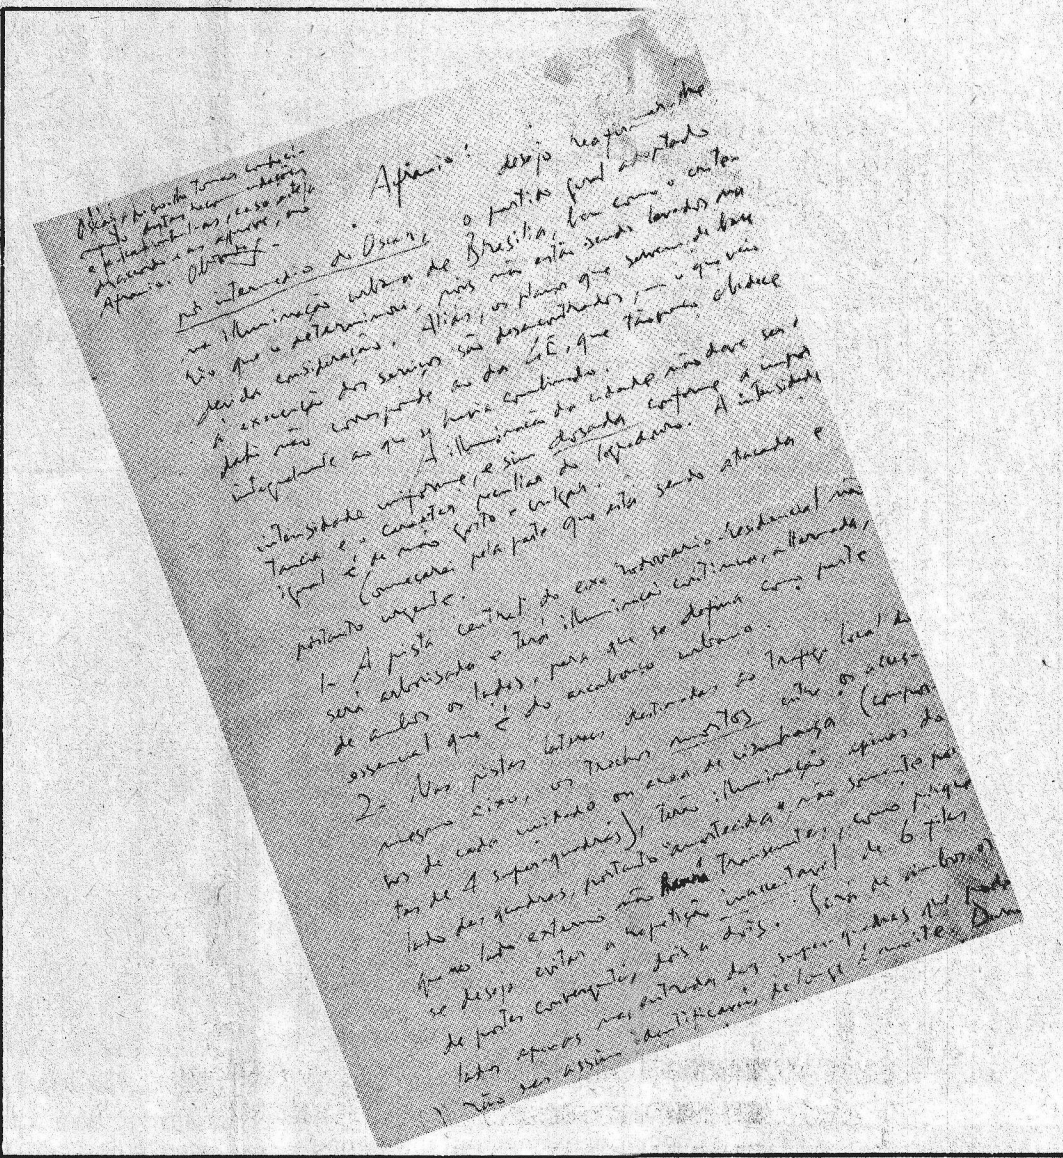 Oscar, peço-lhe tomar conheci-
mento destas recomendações
e ao aprove, ao
Afranio. Obrigado.
Afranio: desejo reafirmar-lhe
por intermedio do Oscar, o partido geral adoptado
na illuminação urbana de Brasilia, bem como o crite-
rio que o determinou, pois não estão sendo levados na
devida consideração. Alias, os planos que servem de base
à execução dos serviços são desencontrados, — o que veio
datº não corresponde ao da GE, que tampouco obdece
integralmente ao que se havia combinado.
A illuminação da cidade não deve ser d
intensidade uniforme, e sim dosada conforme a impor
tancia e o caracter peculiar do logradouro. A intensidade
igual é de máo gosto e vulgar.
Começarei pela parte que está sendo atacada e
portanto urgente.
1- A pista central do eixo rodoviario-residencial não
será arborisada e terá illuminação continua, alternada,
de ambos os lados, para que se defina como parte
essencial que é do arcabouso urbano.
2- Nas pistas lateraes destinadas ao trafego local do
mesmo eixo, os trechos mortos entre os acces-
sos de cada unidade ou area de visinhança (compos-
tas de 4 super-quadras), terão illuminação apenas do
lado das quadras, portanto "amortecida", não somente por
que no lado externo não haverá transeuntes, como porque
se deseja evitar a repetição inaceitavel de 6 filas
de postes convergentes, dois a dois. Será de ambos os
lados apenas nas entradas das super-quadras que pode
rão ser assim identificaveis de longe à noite. Dum